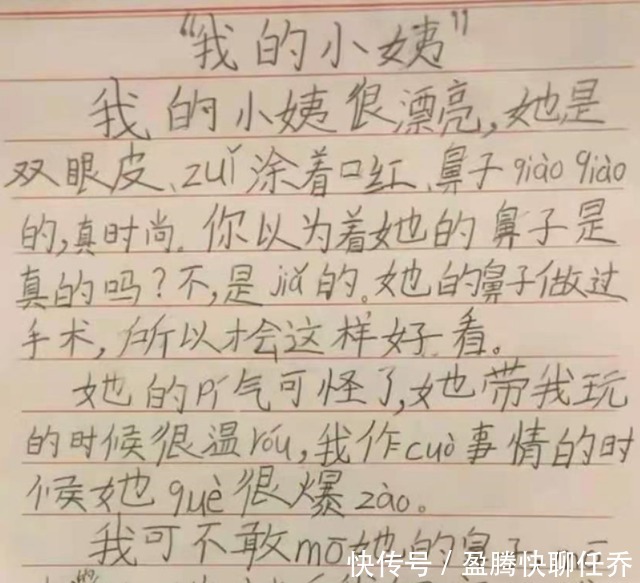 “我的小姨”
我的小姨很漂亮,她是
双眼皮、zuǐ涂着口红、鼻子qiào qiào
的,真时尚。你以为着她的鼻子是
真的吗?不,是jiǎ的。她的鼻子做过
手术,所以才会这样好看。
她的pí气可怪了,她带我玩
的时候很温róu,我作cuò事情的时
候她què很爆zào。
我可不敢mō她的鼻子
快传号/盈腾快聊任乔